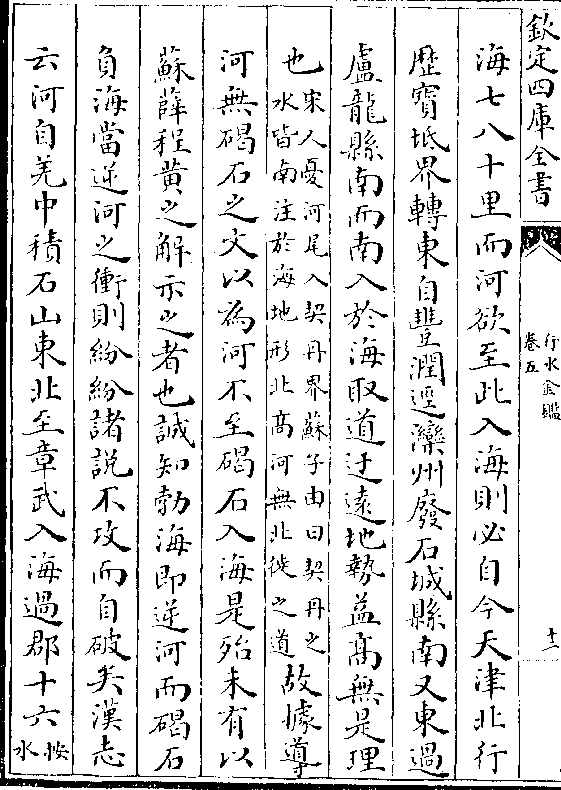 欽定四庫全書
行水金鑑
卷五
十二
海七八十里而河欲至此入海則必自今天津北行
歴寶坻界轉東自豐潤逕灤州廢石城縣南又東過
盧龍縣南而南入於海取道迂遠地勢益髙無是理
也宋人憂河尾入契丹界蘇子由曰契丹之
水皆南注於海地形北髙河無北徙之道故據導
河無碣石之文以為河不至碣石入海是殆未有以
蘇薛程黄之解示之者也誠知勃海即逆河而碣石
負海當逆河之衝則紛紛諸說不攻而自破矣漢志
云河自羌中積石山東北至章武入海過郡十六按
水